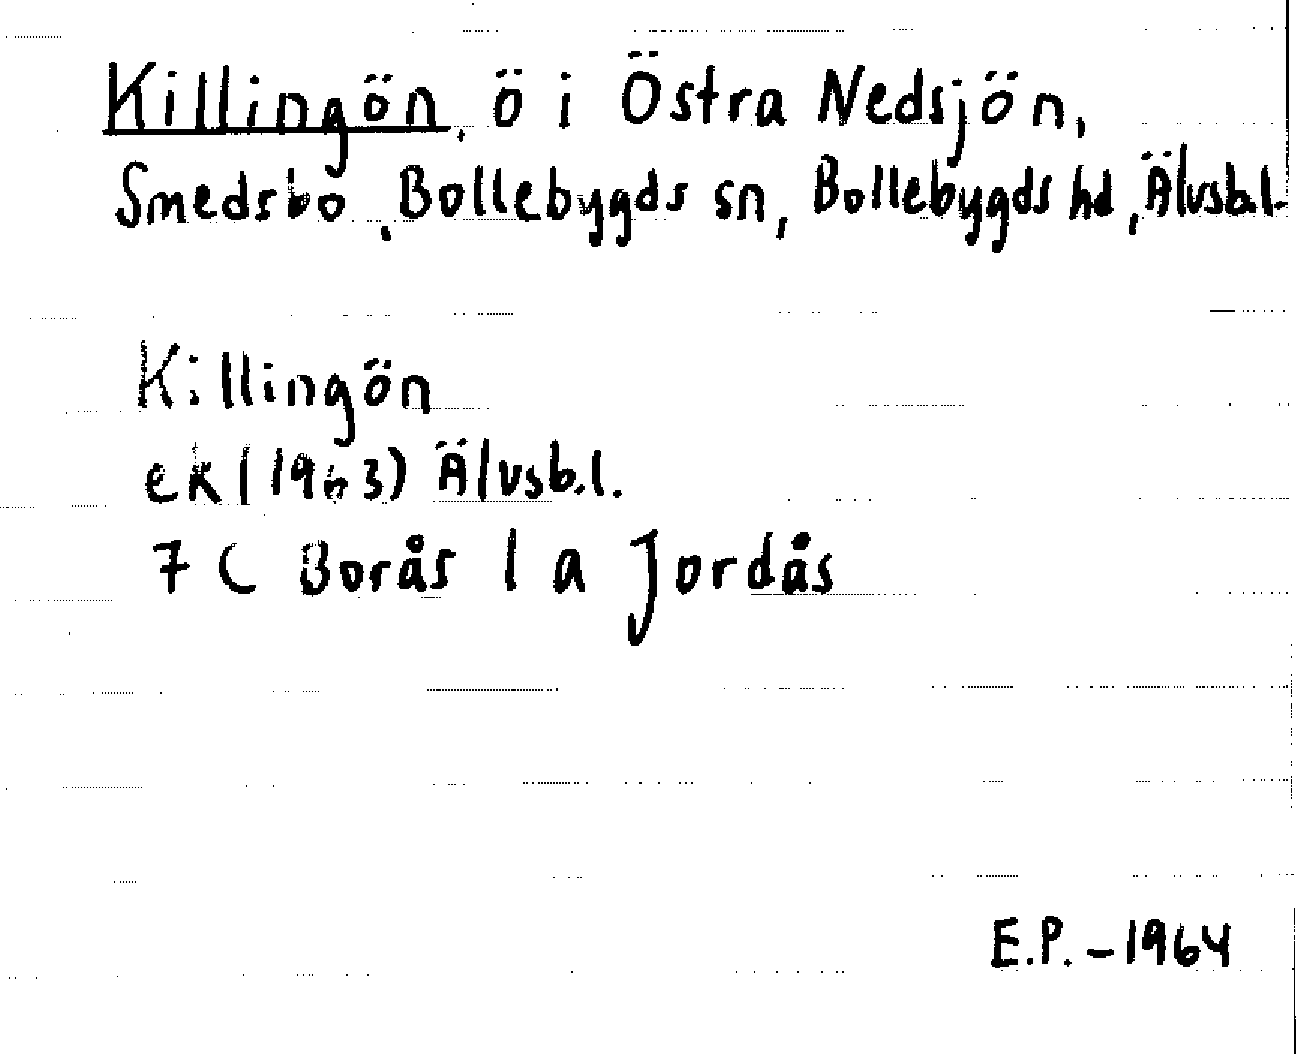 Killingön, ö i Östra Nedsjön,
Smedsbo, Bollebygds sn, Bollebygds hd, Älvsb.l.
Killingön
ek (1963) Älvsb.l.
7 C Borås 1 a Jordås
E.P. - 1964